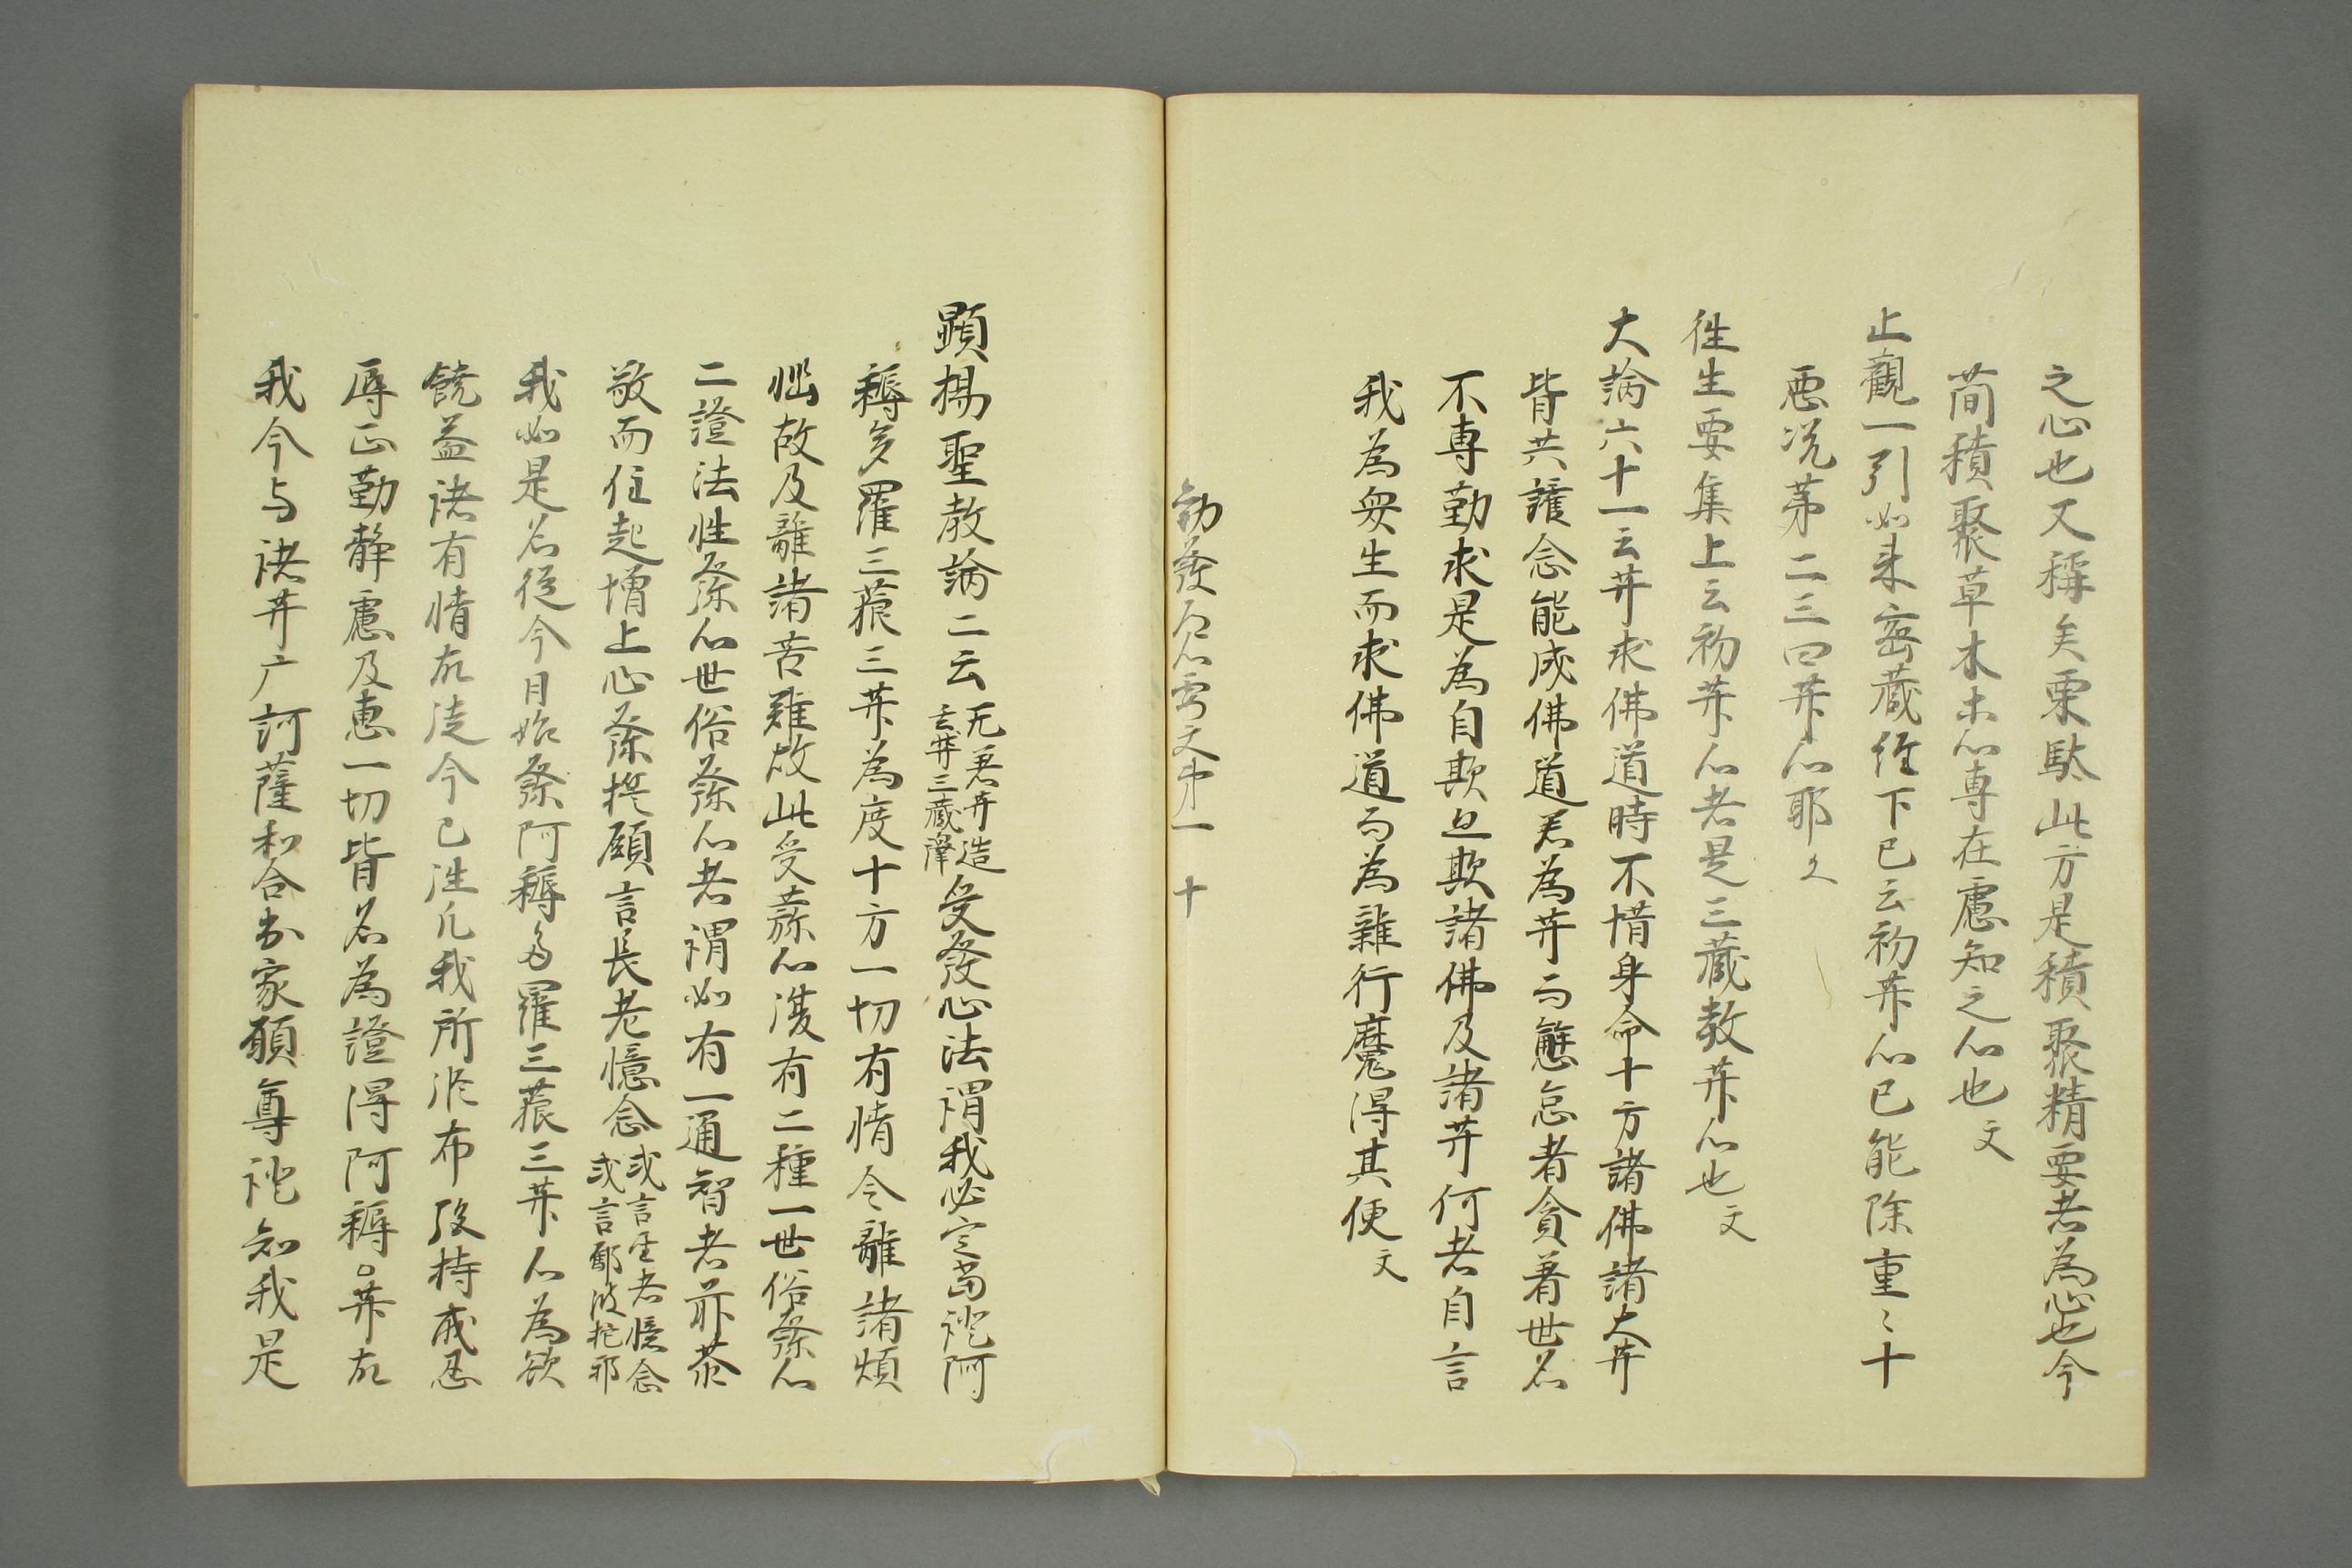 之心也又稱矣栗駄此方是積聚精要者為心也今
簡積聚草木等心專在慮知之心也文
止觀一引如来密蔵経下已云初𦬇心已能除重〻十
悪况苐二三四𦬇心耶文
徃生要集上云初𦬇心者是三蔵教𦬇心也文
大論六十一云𦬇求佛道時不惜身命十方諸佛諸大𦬇
皆共護念能成佛道若為𦬇而懈怠者貪著世名
不専勤求是為自欺亦欺諸佛及諸𦬇何者自言
我為衆生而求佛道而為雜行魔得其便文
勧發 心 文苐一 十
顕揚聖教論二云 无著𦬇造 玄奘三蔵譯 受發心法謂我必定當證阿
耨多羅三藐三𦬇為度十方一切有情令離諸煩
惱故及離諸苦難故此受發心復有二種一世俗發心
二證法性發心世俗發心者謂如有一通智者前恭
敬而住起増上心發捴願言長老憶念 或言聖者憶念 或言鄔波拕耶
我如是名従今日始發阿耨多羅三藐三𦬇心為欲
饒益諸有情故従今已徃凢我所修布施持戒忍
辱正勤静慮及恵一切皆名為證得阿耨〻𦬇故
我今与諸𦬇广訶薩和合出家願尊證知我是